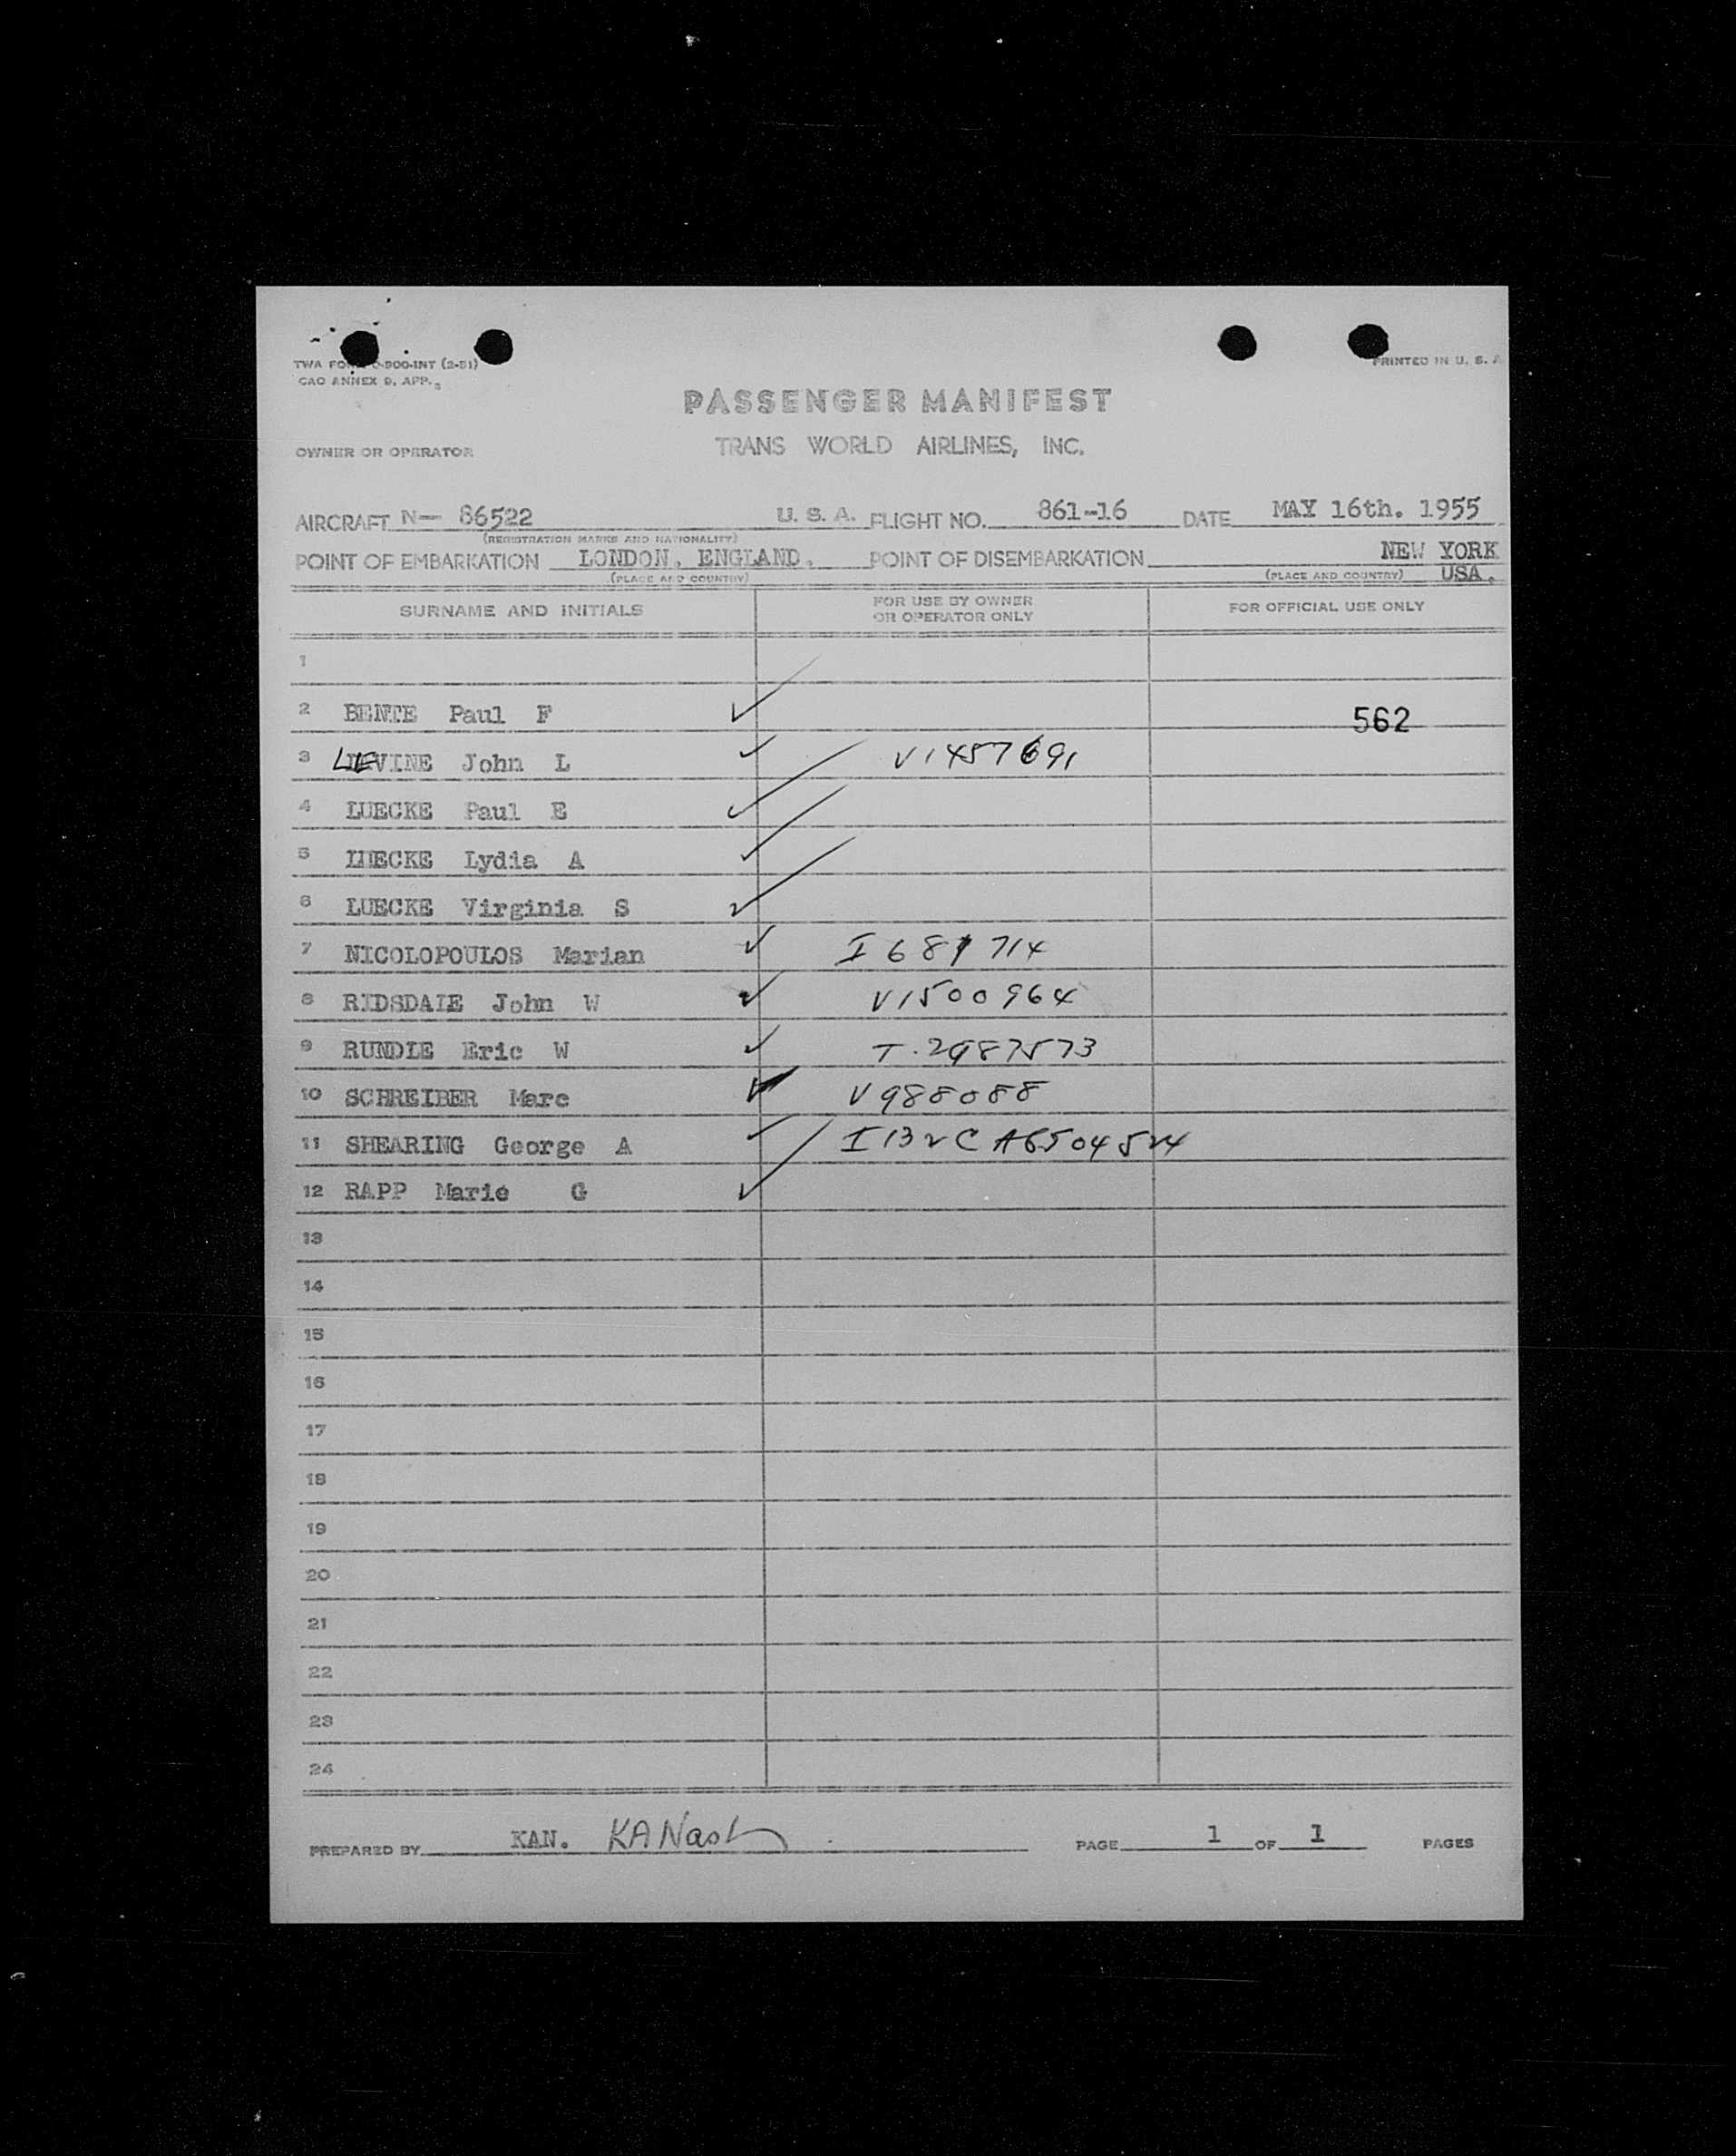 TWA FO O-900-INT (2-51) PRINTED IN U. S. A
CAO ANNEX 9, APP. 3
PASSENGER MANIFEST
OWNER OR OPERATOR TRANS WORLD AIRLINES, INC.
AIRCRAFT N- 86522 U. S. A. FLIGHT NO. 861-16 DATE MAY 16th. 1955
(REGISTRATION MARKS AND NATIONALITY)
POINT OF EMBARKATION LONDON, ENGLAND. POINT OF DISEMBARKATION NEW YORK
(PLACE AND COUNTRY) (PLACE AND COUNTRY) USA.
SURNAME AND INITIALS FOR USE BY OWNER OR OPERATOR ONLY FOR OFFICIAL USE ONLY
1
2 BENTE Paul F ✓ 562
3 LEVINE John L ✓ V1457691
4 LUECKE Paul E ✓
5 LUECKE Lydia A ✓
6 LUECKE Virginia S ✓
7 NICOLOPOULOS Marian ✓ I 681 714
8 RIDSDALE John W ✓ V1500964
9 RUNDLE Eric W ✓ T.2987573
10 SCHREIBER Marc ✓ V988088
11 SHEARING George A ✓ I 132 C A6504524
12 RAPP Marie G ✓
13
14
15
16
17
18
19
20
21
22
23
24
PREPARED BY KAN. KANash PAGE 1 OF 1 PAGES